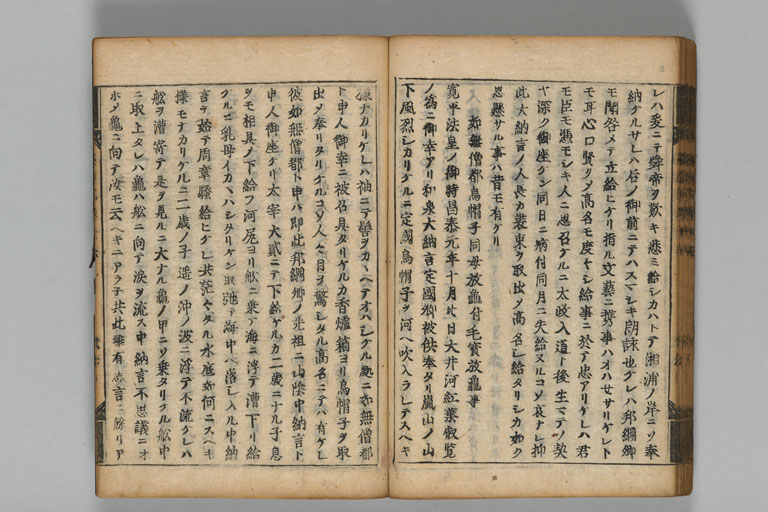 レハ爰ニテ舜帝ヲ歎キ悲ミ給シカハトテ湘浦ノ岸ニソ奉
納ケルサレハ石ノ御前ニテハスマシキ朗詠也クレハ邦綱卿
モ聞咎メテ立給ヒケリ指ル文藝ニ携事ハオハセサリケレト
モ耳心口賢クメ高名モ度々シ給事ニ於テ忠アリケレハ君
モ臣モ憑モシキ人ニ思召ケルニ太政入道ト後生マテノ契
ヤ深ク御座ケン同日ニ病付同月ニ失給ヌルコソ哀ナレ抑
此大納言ノ人長カ裝束ヲ取出メ高名シ給タリシカ如ク
思懸サル事ハ昔モ有ケリ
如無僧都烏帽子同母放龜付毛寳放龜事
寛平法皇ノ御時昌泰元年十月廿日大井河紅葉叡覧
ノ為ニ御幸アリ和泉大納言定國卿被供奉タリ嵐山ノ山
下風烈シカリケルニ定國烏帽子ヲ河ヘ吹入ラレテスヘキ
様ナカリケレハ袖ニテ髻ヲカヽヘテオハシケル処ニ如無僧都
ト申人御幸ニ被召具タリケルカ香爐箱ヨリ烏帽子ヲ取
出メ奉リタリケルコソ人々目ヲ驚シタル高名ニテハ有ケレ
彼如無僧都ト申ハ即此邦綱卿ノ先祖ニ山陰中納言ト
申人御座ケリ太宰大貳ニテ下給ケルカ二歳ニナル子息
ヲモ相具メ下給フ河尻ヨリ舩ニ乗テ海ニ浮テ漕下リ給
クルニ乳母イカヽハシタリケン取弛テ海中ヘ落シ入ル中納
言ヲ始テ周章騒給ヒケレ共茫々タル水底如何ニスヘキ
様モナカリケルニ二歳ノ子遥ノ沖ノ波ニ浮テ不流クレハ
舩ヲ漕寄テ是ヲ見ルニ大ナル龜ノ甲ニソ乗タリクル舩中
ニ取上タレハ龜ハ舩ニ向テ涙ヲ流ス中納言不思議ニオ
ホメ龜ニ向テ汝モ云ヘキニアラ子共此難有志言ニ餘リア